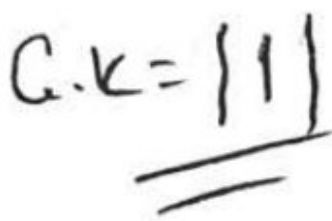 G.K = |1|